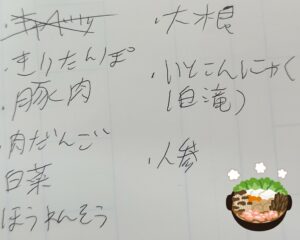 ・きりたんぽ
・豚肉
・肉だんご
白菜
ほうれんそう
・大根
・いとこんにゃく
(白滝)
・人参